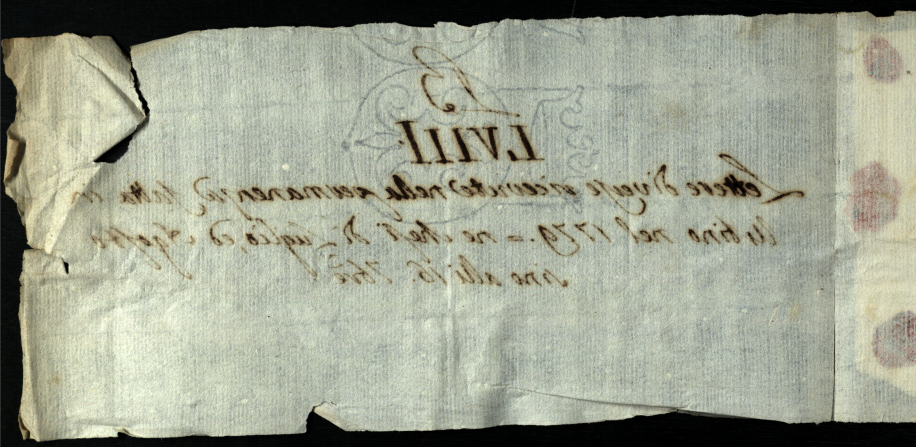 LVIII.
Lettere diverse ricevute nella permanenza fatta in
Urbino nel 1779. = ne mesi di Luglio, ed Agosto
sino alli 16. 7bre